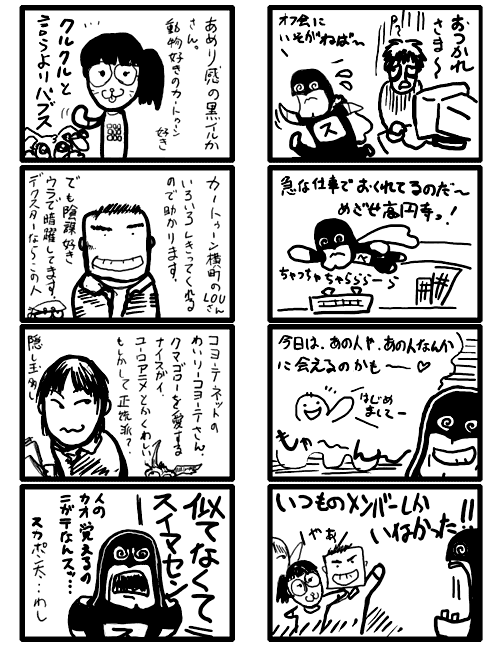 オフ会に
いそがねば〜
おつかれ
さま〜
ス
急な仕事でおくれてるのだ〜
めざせ高円寺っ!
ちゃっちゃちゃらららーら
今日は、あの人や、あの人なんか
に会えるのかも〜♡
はじめ
まして―
もゃ〜ん
いつものメンバーしか
いねかった!!
やあ
あめり感の黒イルか
さん。
動物好きのカートゥーン
好き
クルクルと
言うよりバブス
カートゥーン横町のLOUさん
いろいろしきってくれる
ので助かります。
でも陰謀好き
ウラで暗躍してます。
デクスターならこの人
コヨーテネットの
わいりーコヨーテさん。
クマゴローを愛する
ナイスガイ。
ユーロアニメとかくわしい
もしかして正統派?
隠し玉多し
似てなくて
スイマセン
人の
カオ覚えるの
ニガテなんスッ…
スカポン太…わし
ス